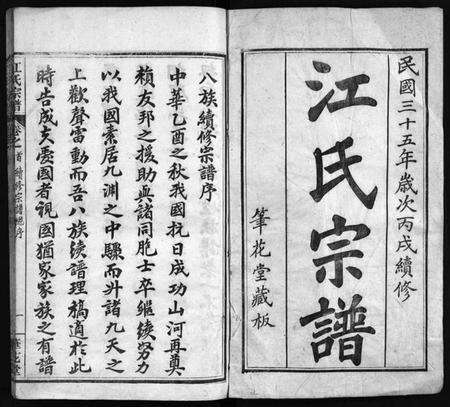 民國三十五年歲次丙戌續修
江氏宗譜
筆花堂藏板
八族續修宗譜序
中華乙酉之秋我國抗日成功山河再奠
賴友邦之援助與諸同胞士卒繼續努力
以我國素居九淵之中驟而升諸九天之
上歡聲雷動而吾八族續譜理稿適於此
時告成夫愛國者視國猶家家族之有譜
江氏宗譜
卷之首
續修宗譜序
一
筆花堂